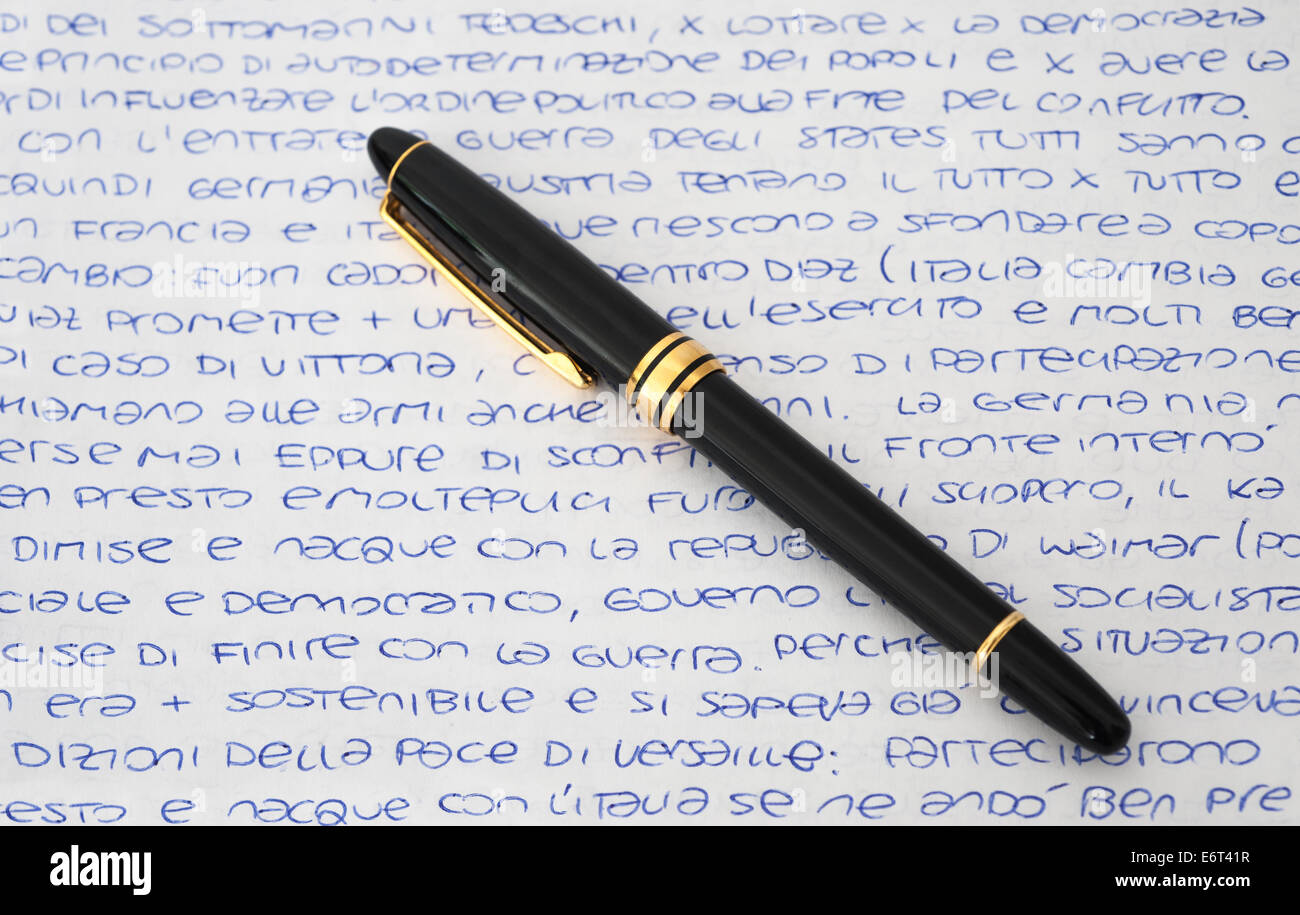 DI DEI SOTTOMARINI TEDESCHI, X LOTTARE X LA DEMOCRAZIA
E PRINCIPIO DI AUTODETERMINAZIONE DEI POPOLI E X AVERE LA
DI INFLUENZARE L'ORDINE POLITICO ALLA FINE DEL CONFLITTO.
CON L'ENTRATA GUERRA DEGLI STATES TUTTI SANNO
QUINDI GERMANIA AUSTRIA TENTANO IL TUTTO X TUTTO E
FRANCIA E ITA RIESCONO A SFONDARE A CAPO
CAMBIO: FUORI CADOR DENTRO DIAZ (ITALIA CAMBIA GE
DIAZ PROMETTE + UMA ELL'ESERCITO E MOLTI BEN
DI CASO DI VITTORIA, C ENSO DI PARTECIPAZIONE
HIAMANO ALLE ARMI ANCHE NNI. LA GERMANIA N
ERSE MAI EPPURE DI SCONFI IL FRONTE INTERNO
EN PRESTO E MOLTEPLICI FURO LI SCIOPERO, IL KA
DIMISE E NACQUE CON LA REPUBB DI WAIMAR (PO
CIALE E DEMOCRATICO, GOVERNO LI AL SOCIALISTA
CISE DI FINIRE CON LA GUERRA. PERCHE SITUAZION
ERA + SOSTENIBILE E SI SAPEVA GIÁ C VINCEVA
DIZIONI DELLA PACE DI VERSAILLE: PARTECIPARONO
ESTO E NACQUE CON L'ITALIA SE NE ANDÓ BEN PRE
alamy
Image ID: E6T41R
www.alamy.com